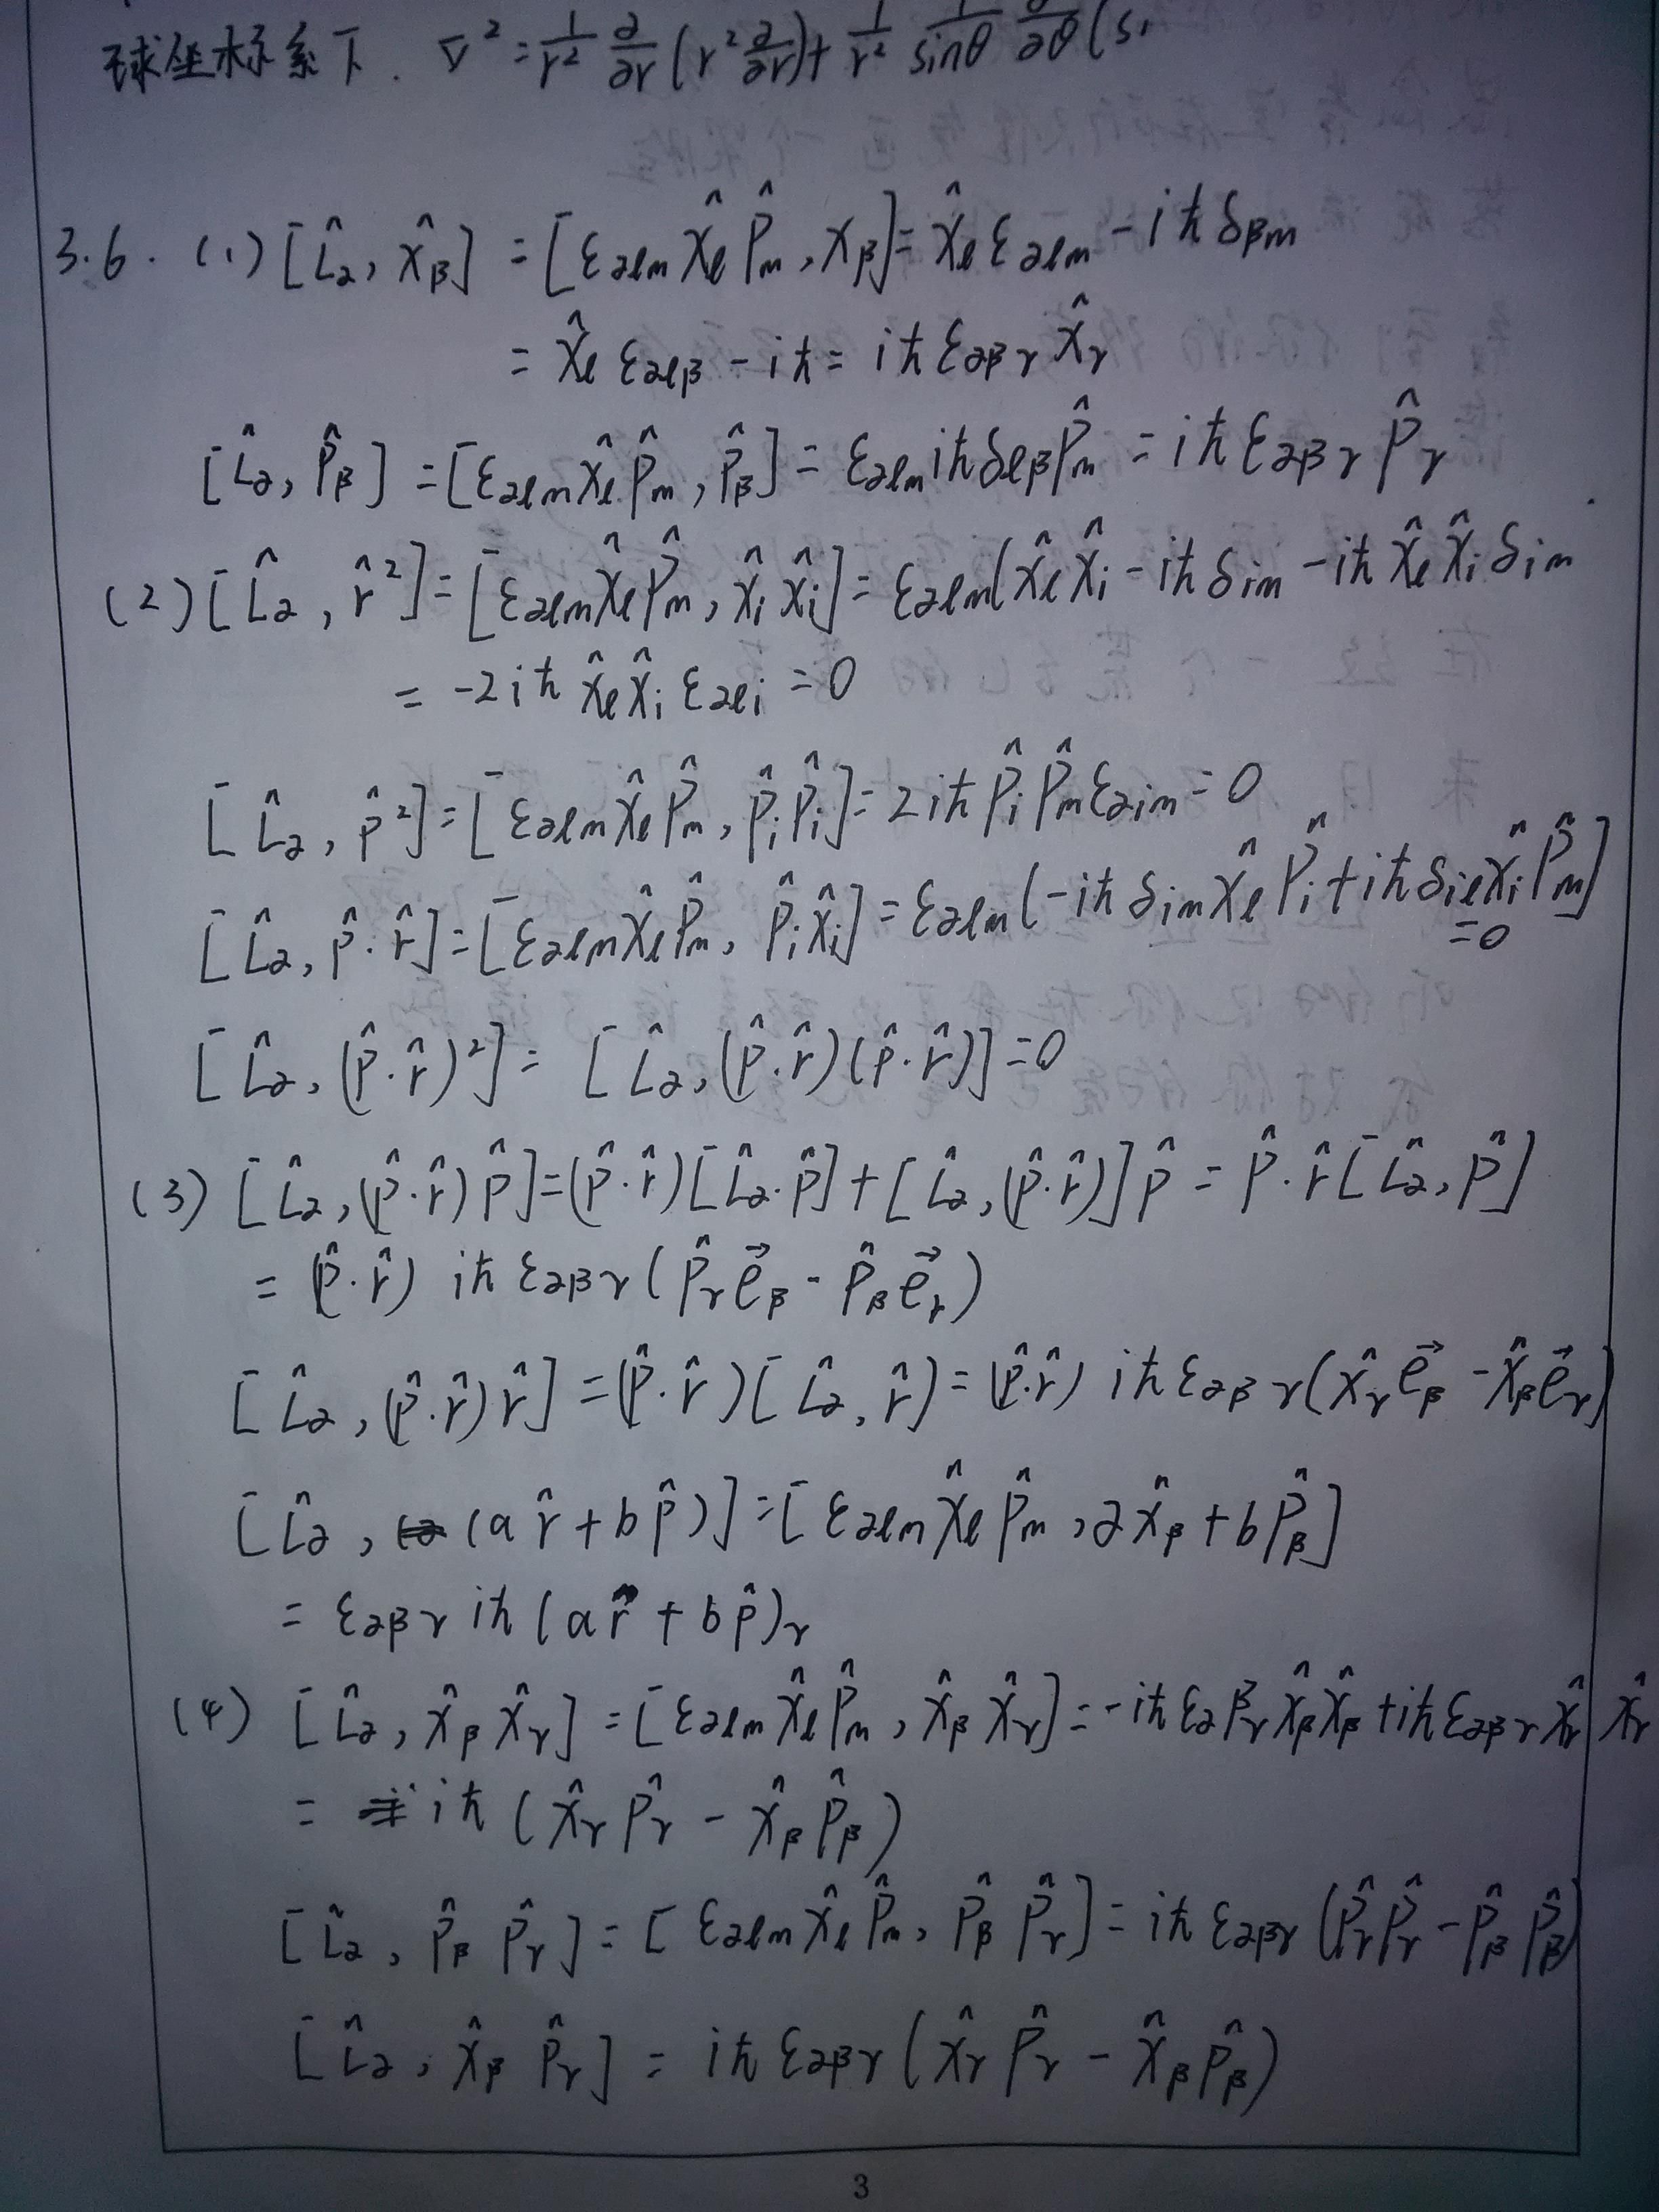 球坐标系下. ∇² = 1/r² ∂/∂r (r² ∂/∂r) + 1/r² 1/sinθ ∂/∂θ (s
3.6. (1) [L̂α, x̂β] = [εαlm x̂l p̂m, xβ] = x̂l εαlm -iħ δβm
= x̂l εαlβ -iħ = iħ εαβγ x̂γ
[L̂α, p̂β] = [εαlm x̂l p̂m, p̂β] = εαlm iħ δlβ p̂m = iħ εαβγ p̂γ
(2) [L̂α, r̂²] = [εαlm x̂l p̂m, x̂i x̂i] = εαlm(x̂l x̂i -iħ δim -iħ x̂l x̂i δim
= -2iħ x̂l x̂i εαli = 0
[L̂α, p̂²] = [εαlm x̂l p̂m, p̂i p̂i] = 2iħ p̂i p̂m εαim = 0
[L̂α, p̂·r̂] = [εαlm x̂l p̂m, p̂i x̂i] = εαlm(-iħ δim x̂l p̂i + iħ δil x̂i p̂m]
=0
[L̂α, (p̂·r̂)²] = [L̂α, (p̂·r̂)(p̂·r̂)] = 0
(3) [L̂α, (p̂·r̂)p̂] = (p̂·r̂)[L̂α. p̂] + [L̂α, (p̂·r̂)]p̂ = p̂·r̂[L̂α, p̂]
= (p̂·r̂) iħ εαβγ (p̂γ e⃗β - p̂β e⃗γ)
[L̂α, (p̂·r̂)r̂] = (p̂·r̂)[L̂α, r̂] = (p̂·r̂) iħ εαβγ (x̂γ e⃗β - x̂β e⃗γ)
[L̂α, (a r̂ + b p̂)] = [εαlm x̂l p̂m, α x̂β + b p̂β]
= εαβγ iħ (a r̂ + b p̂)γ
(4) [L̂α, x̂β x̂γ] = [εαlm x̂l p̂m, x̂β x̂γ] = -iħ εαβγ x̂β x̂β + iħ εαβγ x̂γ x̂γ
= iħ (x̂γ p̂γ - x̂β p̂β)
[L̂α, p̂β p̂γ] = [εαlm x̂l p̂m, p̂β p̂γ] = iħ εαβγ (p̂γ p̂γ - p̂β p̂β)
[L̂α, x̂β p̂γ] = iħ εαβγ (x̂γ p̂γ - x̂β p̂β)
3